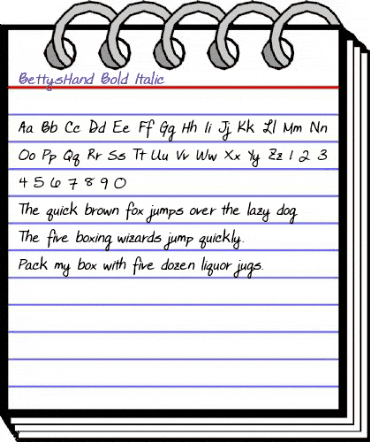 BettysHand Bold Italic
Aa Bb Cc Dd Ee Ff Gg Hh Ii Jj Kk Ll Mm Nn
Oo Pp Qq Rr Ss Tt Uu Vv Ww Xx Yy Zz 1 2 3
4 5 6 7 8 9 0
The quick brown fox jumps over the lazy dog
The five boxing wizards jump quickly.
Pack my box with five dozen liquor jugs.